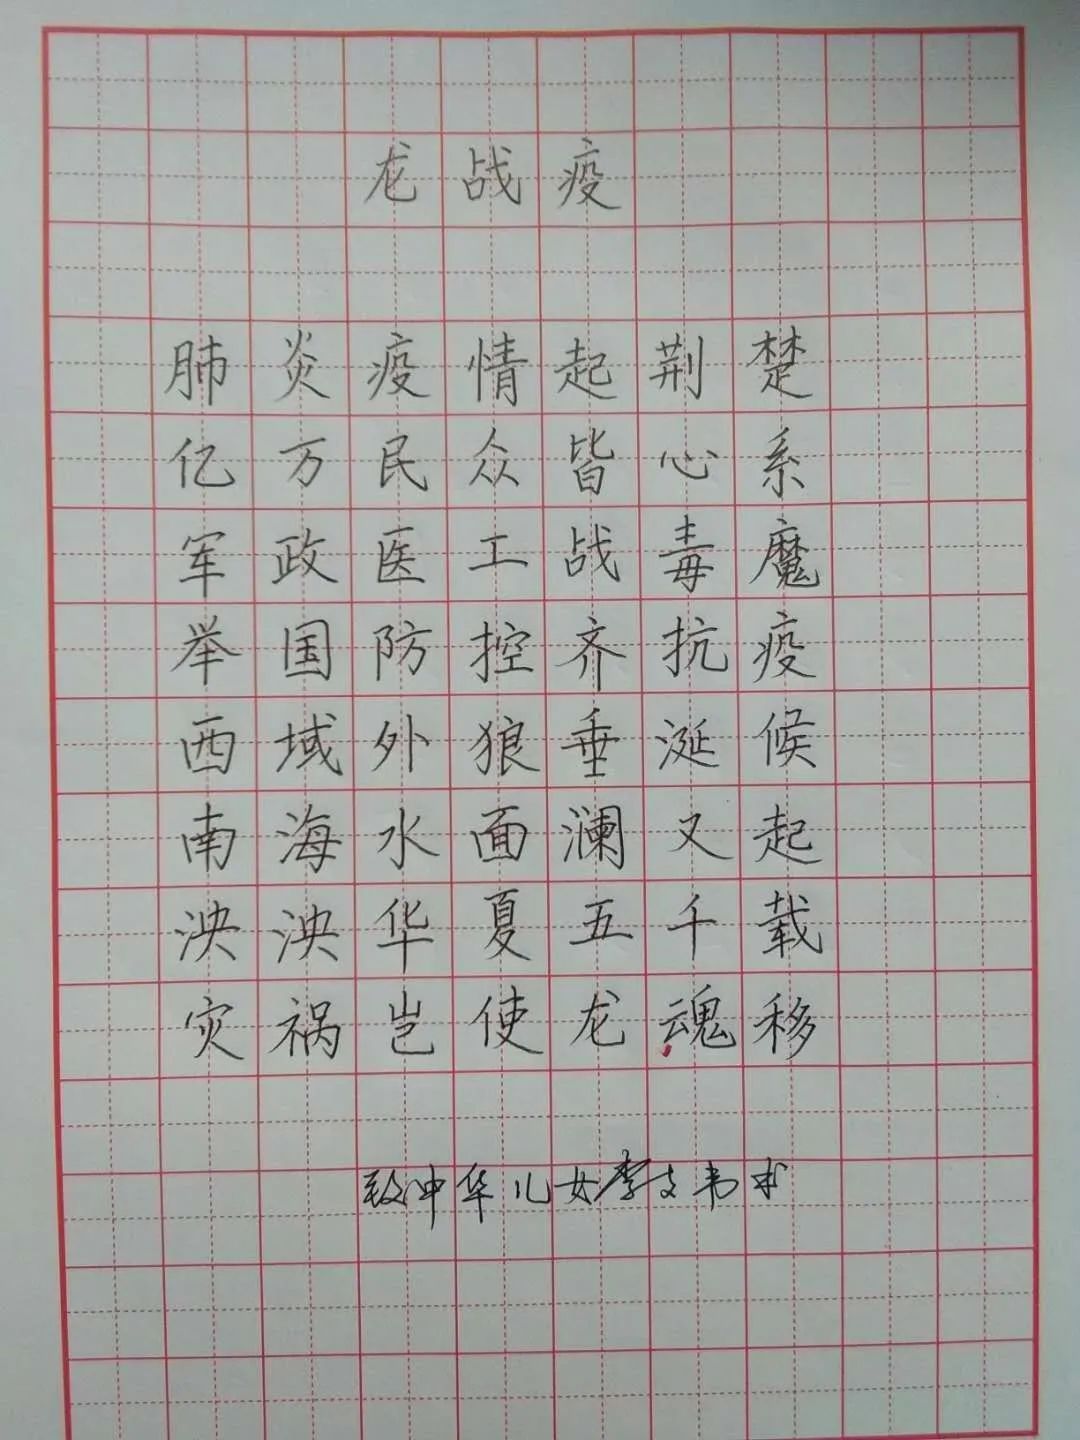 龙战疫
肺炎疫情起荆楚
亿万民众皆心系
军政医工战毒魔
举国防控齐抗疫
西域外狼垂涎候
南海水面澜又起
泱泱华夏五千载
灾祸岂使龙魂移
致中华儿女李文韦书